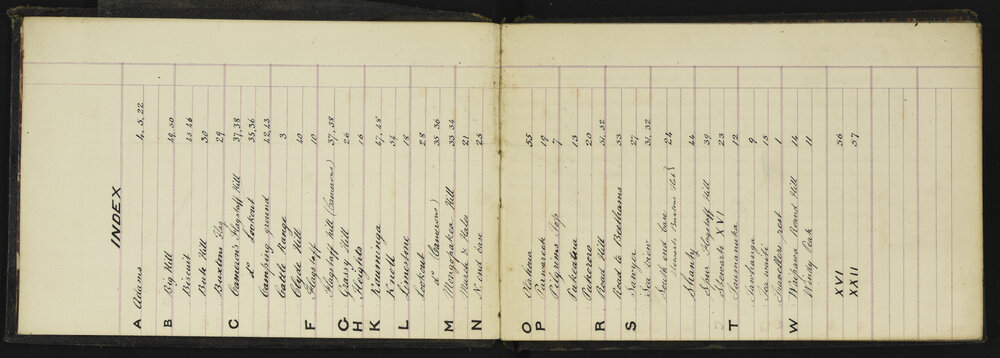 INDEX
A Adams 4, 5, 22
B Big Hill 49, 50
Biscuit 45 46
Bush Hill 30
Buxtons Flag 29
C Cameron's Flagstaff Hill 37, 38
do Lookout 35, 36
Camping ground 42, 43
Castle Range 3
Clyde Hill 40
F Flagstaff 10
Flagstaff Hill (Camerons) 37, 38
G Grassy Hill 26
H Heights 16
K 47, 48
Knoell 54
L Limestone 18
Lookout 28
do Camerons 35 36
M Mongopakea Hill 33 34
March & Halo 21
N N. end base 25
O 55
P Parwareck 19
Pilgrims Top 7
Pukeatua 13
Pukeroro 20
R Round Hill 51, 52
Road to Beethams 53
S Sawyer 27
Sea View 31, 32
South end base 24
Stewarts Buxtons
Shanty 44
Spur Flagstaff Hill 39
Stewarts XVI 23
T Taumanuka 12
Tawhanga 9
Tea waiti 15
Travellers rest 1
W Waipawa Round Hill 14
Windy Peak 11
XVI 56
XXIII 57